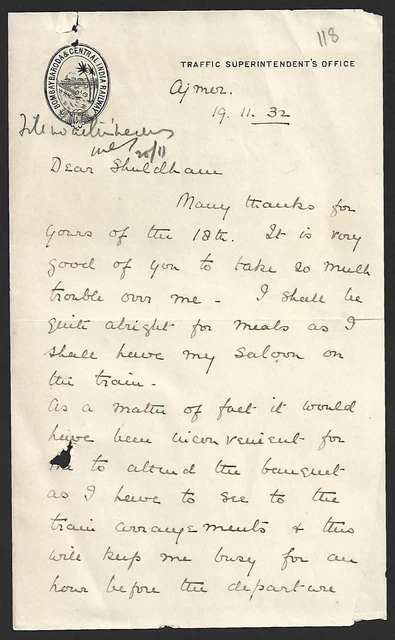 118
BOMBAY BARODA & CENTRAL INDIA RAILWAY
TRAFFIC SUPERINTENDENT'S OFFICE
Ajmer.
19. 11. 32
20/11
Dear Shuldham
Many thanks for
yours of the 18th. It is very
good of you to take so much
trouble over me - I shall be
quite alright for meals as I
shall have my saloon on
the train -
As a matter of fact it would
have been inconvenient for
me to attend the banquet
as I have to see to the
train arrangements & this
will keep me busy for an
hour before the departure